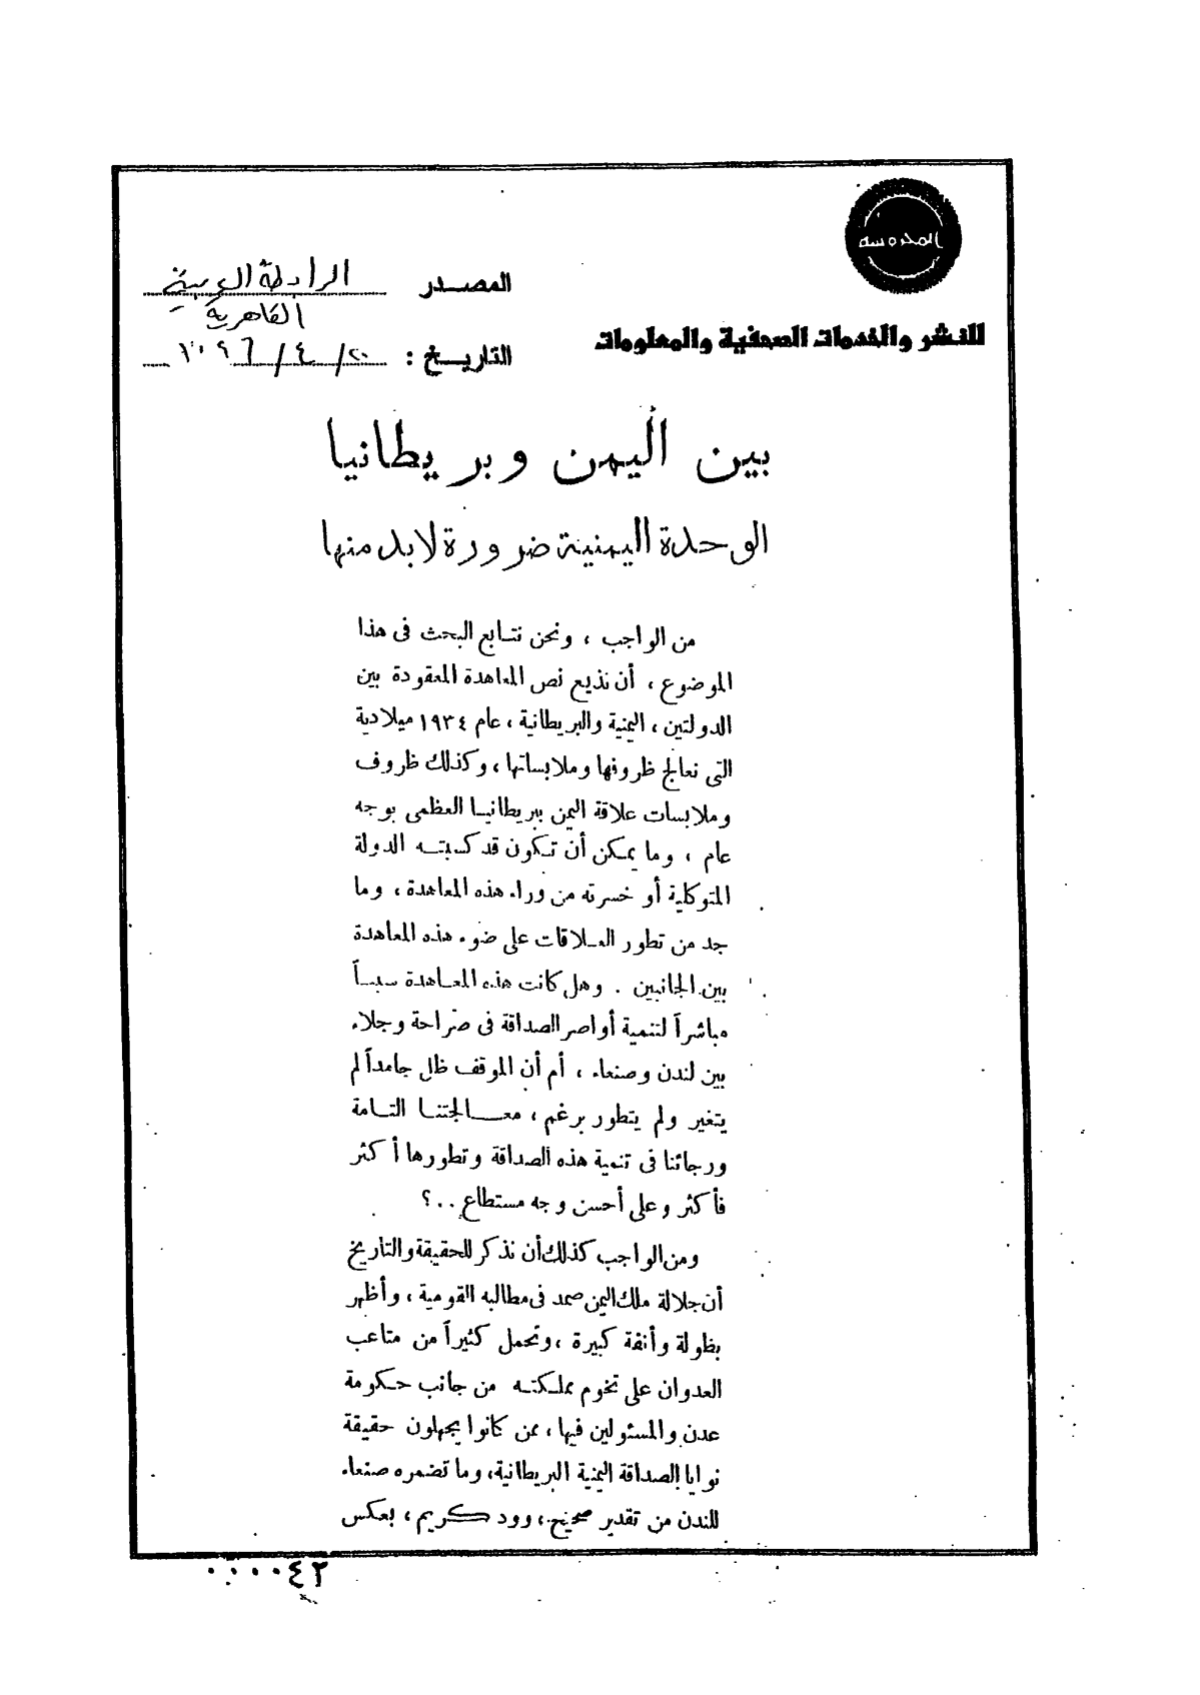 المحروسه
المصدر الرابطة العربية
القاهرية
للنشر والخدمات الصحفية والمعلومات
التاريخ : ٢٠/٤/
بين اليمن وبريطانيا
الوحدة اليمنية ضرورة لابد منها
من الواجب ، ونحن نتابع البحث فى هذا
الموضوع ، أن نذيع نص المعاهدة المعقودة بين
الدولتين ، اليمنية والبريطانية ، عام ١٩٣٤ ميلادية
التى نعالج ظروفها وملابساتها ، وكذلك ظروف
وملابسات علاقة اليمن ببريطانيا العظمى بوجه
عام ، وما يمكن أن تكون قد كسبته الدولة
المتوكلية أو خسرته من وراء هذه المعاهدة ، وما
جد من تطور العلاقات على ضوء هذه المعاهدة
بين الجانبين . وهل كانت هذه المعاهدة سبباً
مباشراً لتنمية أواصر الصداقة فى صراحة وجلاء
بين لندن وصنعاء ، أم أن الموقف ظل جامداً لم
يتغير ولم يتطور برغم ، معالجتنا التامة
ورجائنا فى تنمية هذه الصداقة وتطورها أكثر
فأكثر وعلى أحسن وجه مستطاع ..؟
ومن الواجب كذلك أن نذكر للحقيقة والتاريخ
أن جلالة ملك اليمن صمد فى مطالبه القومية ، وأظهر
بطولة وأنفة كبيرة ، وتحمل كثيراً من متاعب
العدوان على تخوم مملكته من جانب حكومة
عدن والمسئولين فيها ، ممن كانوا يجهلون حقيقة
نوايا الصداقة اليمنية البريطانية ، وما تضمره صنعاء
للندن من تقدير صحيح ، وود كريم ، بعكس
٠٠٠٠٤٢